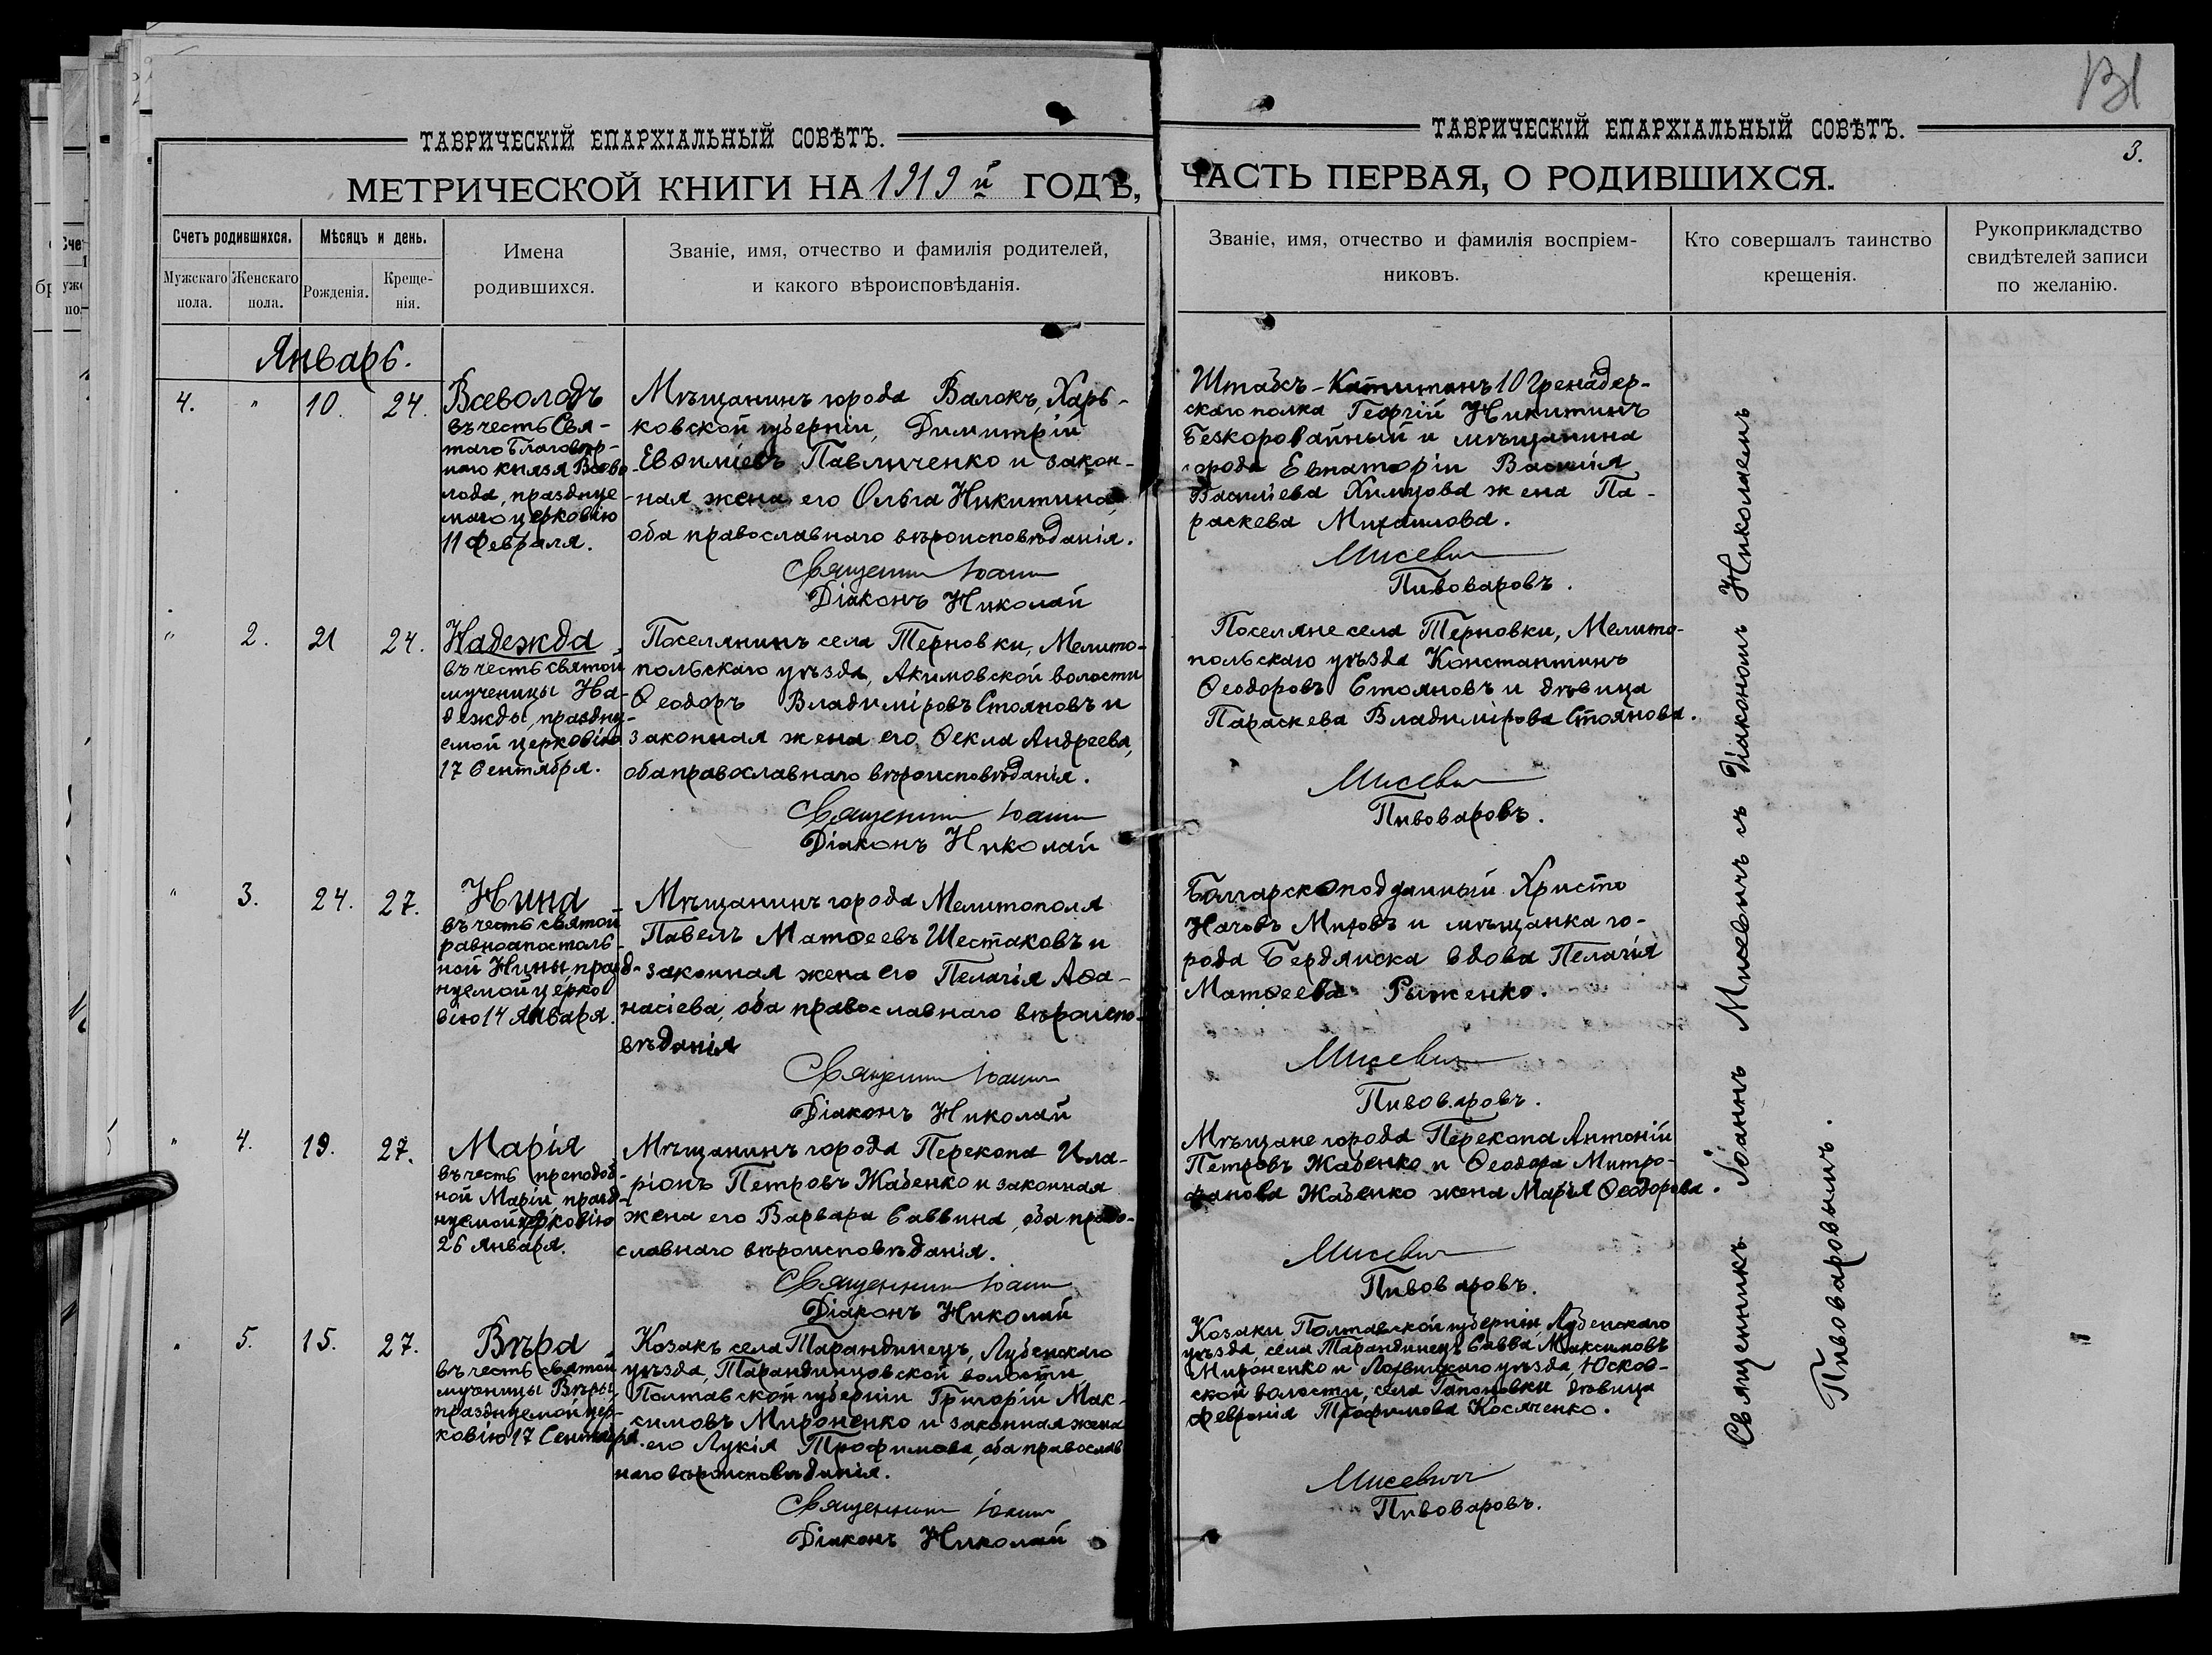 131
ТАВРИЧЕСКІЙ ЕПАРХІАЛЬНЫЙ СОВѢТЪ.
МЕТРИЧЕСКОЙ КНИГИ НА 1919 й ГОДЪ,
Счетъ родившихся.
Мужскаго пола.
Женскаго пола.
Мѣсяцъ и день.
Рожденія.
Креще-
нія.
Имена
родившихся.
Званіе, имя, отчество и фамилія родителей,
и какого вѣроисповѣданія.
ТАВРИЧЕСКІЙ ЕПАРХІАЛЬНЫЙ СОВѢТЪ.
3.
ЧАСТЬ ПЕРВАЯ, О РОДИВШИХСЯ.
Званіе, имя, отчество и фамилія воспріем-
никовъ.
Кто совершалъ таинство
крещенія.
Рукоприкладство
свидѣтелей записи
по желанію.
Январь.
4. " 10. 24.
Всеволодъ
въ честь Свя-
таго Благовѣр-
наго князя Всево-
лода, празднуе
маго церковію
11 Февраля.
Мѣщанинъ города Валокъ, Харь-
ковской губерніи, Димитрій
Евѳиміевъ Павличенко и закон-
ная жена его Ольга Никитина,
оба православнаго вѣроисповѣданія.
Священник Іоанн
Діаконъ Николай
Штабсъ-Капитанъ 10 Гренадер-
скаго полка Георгій Никитинъ
Безкоровайный и мѣщанина
города Евпаторіи Василія
Васильева Химцова жена Па-
раскева Михаилова.
Мисевич
Пивоваровъ.
" 2. 21 24.
Надежда
въ честь святой
мученицы На-
дежды, праздну-
емой церковію
17 Сентября.
Поселянинъ села Терновки, Мелито-
польскаго уѣзда, Акимовской волости
Ѳеодоръ Владиміровъ Стояновъ и
законная жена его Ѳекла Андреева,
оба православнаго вѣроисповѣданія.
Священник Іоанн
Діаконъ Николай
Поселяне села Терновки, Мелито-
польскаго уѣзда Константинъ
Ѳеодоровъ Стояновъ и дѣвица
Параскева Владимірова Стоянова.
Мисевич
Пивоваровъ.
" 3. 24. 27.
Нина
въ честь святой
равноапостоль-
ной Нины, празд-
нуемой церко
вію 14 Января.
Мѣщанинъ города Мелитополя
Павелъ Матѳеевъ Шестаковъ и
законная жена его Пелагія Аѳа-
насіева, оба православнаго вѣроиспо-
вѣданія
Священник Іоанн
Діаконъ Николай
Болгарскоподданный Христо
Начовъ Митовъ и мѣщанка го-
рода Бердянска вдова Пелагія
Матѳеева Рыженко.
Мисевич
Пивоваровъ.
" 4. 19. 27.
Марія
въ честь преподоб-
ной Маріи, празд-
нуемой церковію
26 Января.
Мѣщанинъ города Перекопа Ила-
ріонъ Петровъ Жабенко и законная
жена его Варвара Саввина, оба право-
славнаго вѣроисповѣданія.
Священник Іоанн
Діаконъ Николай
Мѣщане города Перекопа Антоній
Петровъ Жабенко и Ѳеодора Митро-
фанова Жабенко жена Марія Ѳеодорова.
Мисевич
Пивоваровъ.
" 5. 15. 27.
Вѣра
въ честь святой
мученицы Вѣры,
празднуемой цер-
ковію 17 Сентября.
Козакъ села Тарандинецъ, Лубенскаго
уѣзда, Тарандинцовской волости
Полтавской губерніи Григорій Мак-
симовъ Мироненко и законная жена
его Лукія Трофимова, оба православ
наго вѣроисповѣданія.
Священник Іоанн
Діаконъ Николай
Козаки Полтавской губерніи Лубенскаго
уѣзда села Тарандинецъ Савва Максимовъ
Мироненко и Лохвицкаго уѣзда, Юсков-
ской волости, села Гапоновки дѣвица
Февронія Трофимова Косяченко.
Мисевич
Пивоваровъ.
Священникъ Іоаннъ Мисевичъ съ Діакономъ Николаемъ
Пивоваровымъ.